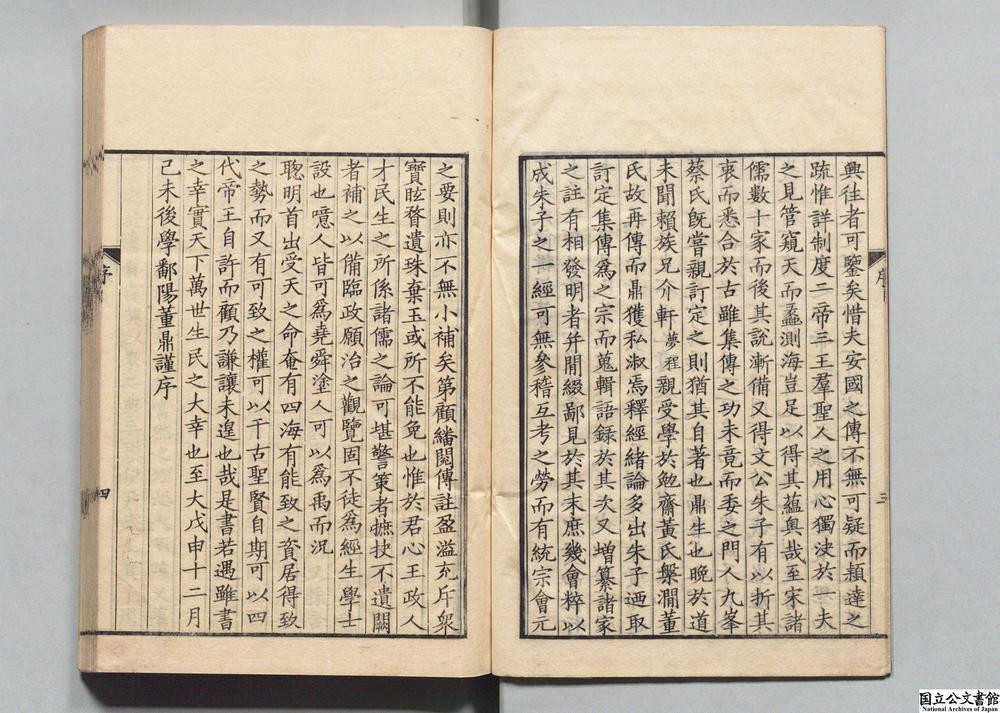 興往者可鑒矣惜夫安國之傳不無可疑而穎達之
疏惟詳制度二帝三王羣聖人之用心獨決於世夫
之見管窺天而蠡測海豈足以得其蘊奧哉至宋諸
儒數十家而後其說漸備又得文公朱子有以折其
衷而悉合於古雖集傳之功未竟而委之門人九峯
蔡氏旣嘗親訂定之則猶其自著也鼎生也晚於道
未聞賴族兄介軒夢程親受學於勉齋黃氏槃澗董
氏故再傳而鼎獲私淑焉釋經緒論多出朱子迺取
訂定集傳爲之宗而蒐輯語録於其次又增纂諸家
之註有相發明者幷間綴鄙見於其末庶幾會粹以
成朱子之一經可無參稽互考之勞而有統宗會元
序
三
之要則亦不無小補矣第顧繙閱傳註盈溢充斥衆
寶眩瞀遺珠棄玉或所不能免也惟於君心王政人
才民生之所係諸儒之論可堪警策者摭抉不遺闕
者補之以備臨政願治之觀覽固不徒爲經生學士
設也噫人皆可爲堯舜塗人可以爲禹而況
聰明首出受天之命奄有四海有能致之資居得致
之勢而又有可致之權可以千古聖賢自期可以四
代帝王自許而顧乃謙讓未遑也哉是書若遇雖書
之幸實天下萬世生民之大幸也至大戊申十二月
己未後學鄱陽董鼎謹序
序
四
国立公文書館
National Archives of Japan